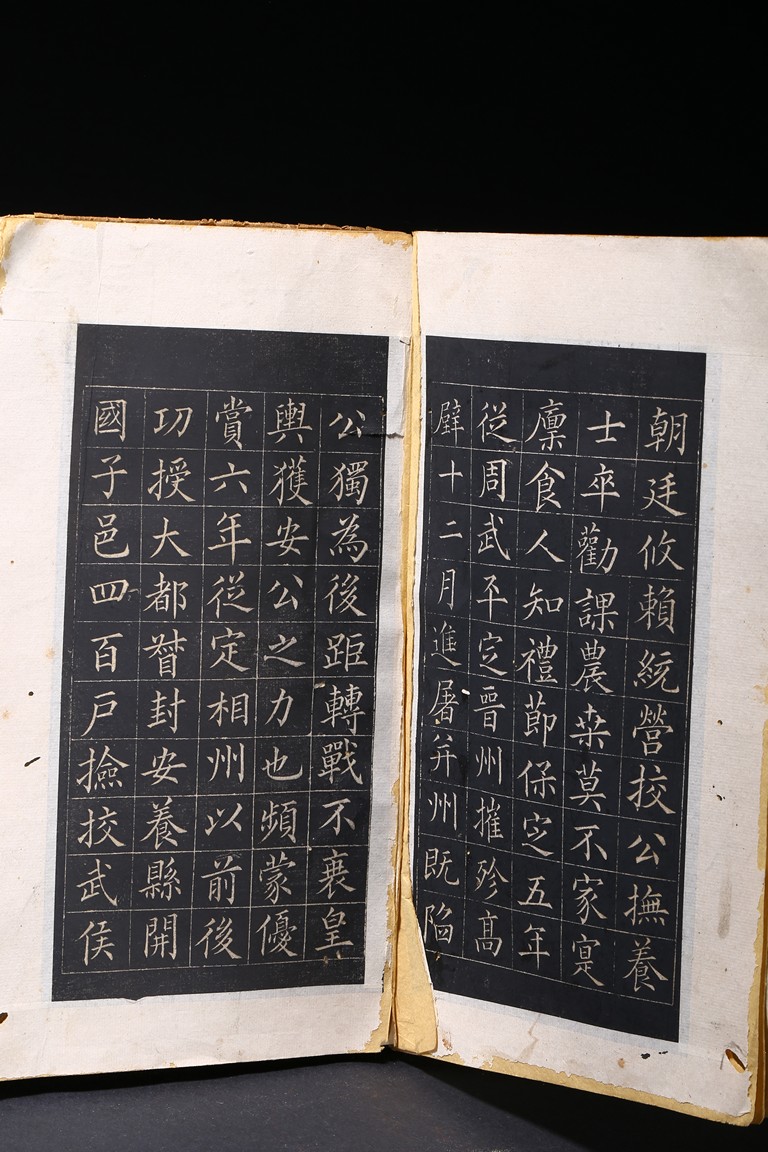 朝廷攸賴統營挍公撫養
士卒勸課農桒莫不家寔
廩食人知禮節保定五年
從周武平定晉州摧殄髙
壁十二月進屠并州既陷
公獨為後距轉戰不衰皇
輿獲安公之力也頻蒙優
賞六年從定相州以前後
功授大都督封安養縣開
國子邑四百戶撿挍武侯